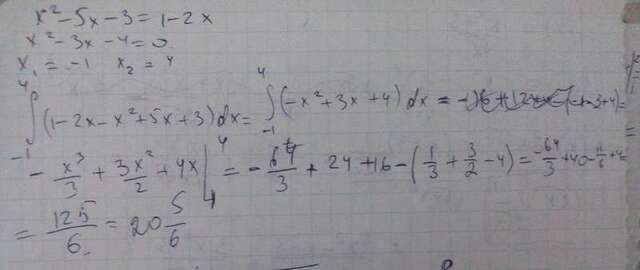 x² - 5x - 3 = 1 - 2x
x² - 3x - 4 = 0
x₁ = -1 x₂ = 4
4 ∫ -1 (1 - 2x - x² + 5x + 3) dx = 4 ∫ -1 (-x² + 3x + 4) dx =
- x³/3 + 3x²/2 + 4x | 4 = - 64/3 + 24 + 16 - (1/3 + 3/2 - 4) = -64/3 + 40 - 11/6 + 4 =
= 125/6 = 20 5/6